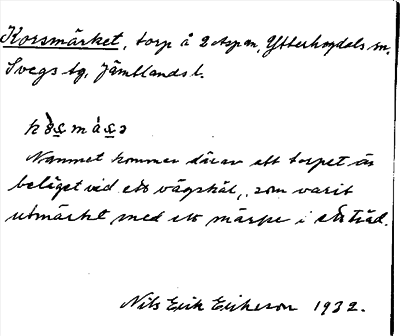 Korsmärket, torp å Aspan, Ytterhogdals sn,
Svegs tg, Jämtlands l.
Namnet kommer därav att torpet är
beläget vid ett vägskäl, som varit
utmärkt med ett märke i ett träd.
Nils Erik Erikson 1932.